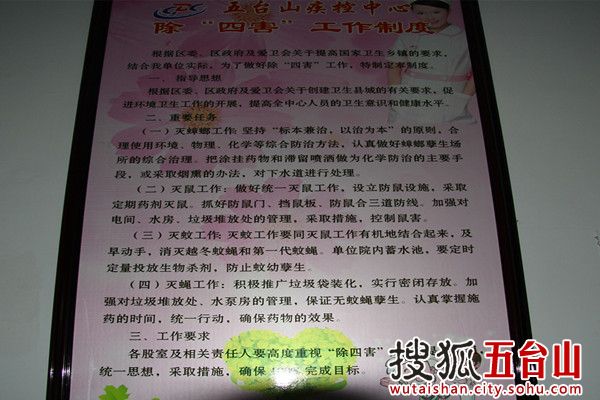 五台山疾控中心
除“四害”工作制度
根据区委、区政府及爱卫会关于提高国家卫生乡镇的要求，
结合我单位实际，为了做好除“四害”工作，特制定本制度。
一、指导思想
根据区委、区政府及爱卫会关于创建卫生县城的有关要求，促
进环境卫生工作的开展，提高全中心人员的卫生意识和健康水平。
二、重要任务
（一）灭蟑螂工作：坚持“标本兼治，以治为本”的原则，合
理使用环境、物理、化学等综合防治方法，认真做好蟑螂孳生场
所的综合治理。把涂挂药物和滞留喷洒做为化学防治的主要手
段，或采取烟熏的办法，对下水道进行处理。
（二）灭鼠工作：做好统一灭鼠工作，设立防鼠设施，采取
定期药剂灭鼠。抓好防鼠门、挡鼠板、防鼠台三道防线。加强对
电间、水房、垃圾堆放处的管理，采取措施，控制鼠害。
（三）灭蚊工作：灭蚊工作要同灭鼠工作有机地结合起来，及
早动手，消灭越冬蚊蝇和第一代蚊蝇。单位院内蓄水池，要定时
定量投放生物杀剂，防止蚊幼孳生。
（四）灭蝇工作：积极推广垃圾袋装化，实行密闭存放。加
强对垃圾堆放处、水泵房的管理，保证无蚊蝇孳生。认真掌握施
药的时间，统一行动，确保药物的效果。
三、工作要求
各股室及相关责任人要高度重视“除四害”
统一思想，采取措施，确保 完成目标。
搜狐五台山
wutaishan.city.sohu.com